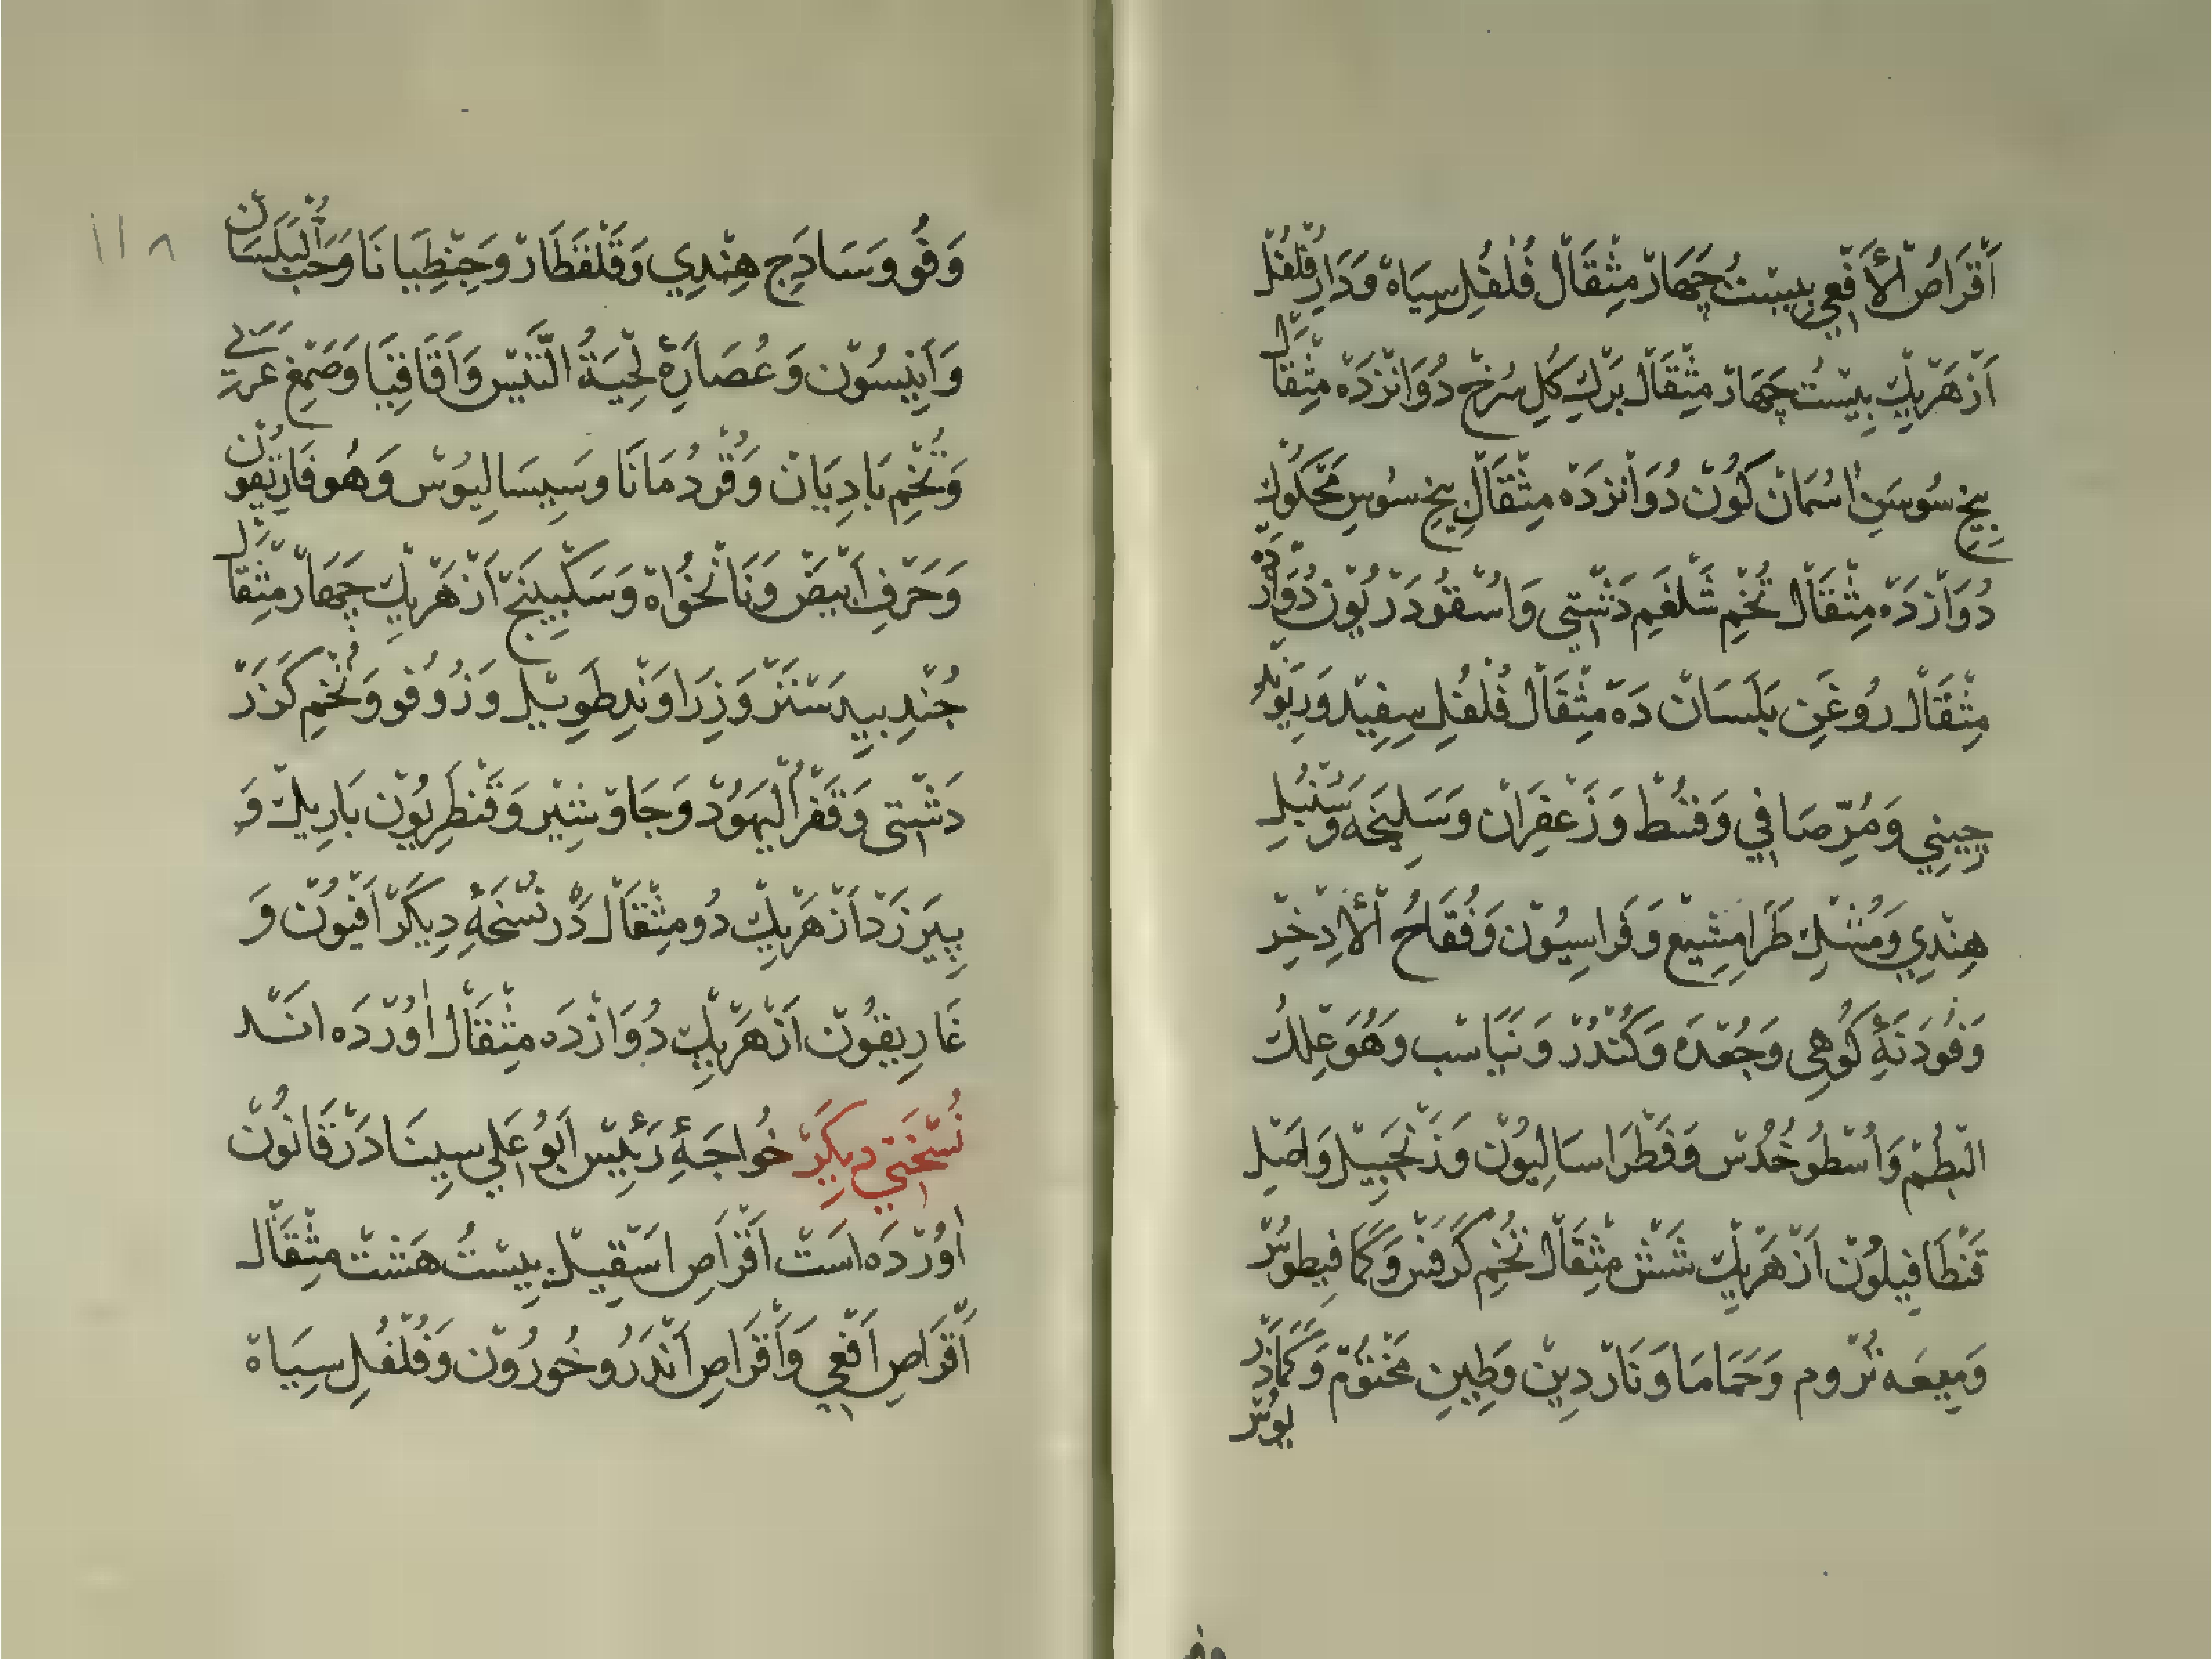 اَقْرَاصُ اْلأَفْعِي بِيسْتُ چَهَارْ مِثْقَالْ فُلْفُلِ سِيَاهْ وَدَارِفُلْفُلْ
اَزْ هَرْيِكْ بِيسْتُ چَهَارْ مِثْقَالْ بَرْكِ كُلِ سُرْخْ دُوَانْزَدَه مِثْقَالْ
بِيخِ سُوسَنِ اسْمَانْ كُونْ دُوَانْزَدَه مِثْقَالْ بِيخِ سُوسِ مَحْكُوكْ
دُوَازْدَه مِثْقَالْ تُخْمِ شَلْغَمِ دَشْتِي وَاُسْقُودَرْيُونْ دُوَازْدَه
مِثْقَالْ رُوغَنِ بَلَسَانْ دَهْ مِثْقَالْ فُلْفُلِ سِفِيدْ وَرِيوَنْدِ
چِينِي وَمُرِّ صَافِي وَقُسْطْ وَزَعْفِرَانْ وَسَلِيخَه وَسُنْبُلِ
هِنْدِي وَمُشْكِ طَرَامَشِيعْ وَفَرَاسِيُونْ وَفُقَاحُ اْلأِدْخِرْ
وَفُودَنَهِٔ كُوهِي وَجُعْدَه وَكُنْدُرْ وَنَيَاسْب وَهُوَ عِلْكُ
الْبُطُمْ وَاُسْطُوخُدُسْ وَفَطْرَاسَالِيُونْ وَزَنْجَبِيلْ وَاصْلِ
قَنْطَافِيلُونْ اَزْ هَرْيِكْ شَشْ مِثْقَالْ تُخْمِ كَرَفْسْ وَكَمَافِيطُوسْ
وَمِيعَه تُرُومْ وَحَمَامَا وَنَارْدِينْ وَطِينِ مَخْتُومْ وَكَمَاذَرْيُوسْ
وفو
١١٨
وَفُو وَسَادَجِ هِنْدِي وَقَلْقَطَارْ وَجِنْطِيَانَا وَحَبُّ الْبَلَسَانْ
وَاَنِيسُونْ وَعُصَارَهْ لِحْيَةُ التَّيْسْ وَاَقَاقِيَا وَصَمْغِ عَرَبِي
وَتُخْمِ بَادِيَانْ وَقُرْدُمَانَا وَسِيسَالِيُوسْ وَهُوفَارِيقُونْ
وَحَرْفِ اَبْيَضْ وَنَانْخُوَاهْ وَسَكْبِينَجْ اَزْ هَرْيِكْ چَهَارْ مِثْقَالْ
جُنْدِ بِيدَسْتَرْ وَزِرَاوَنْدِ طَوِيلْ وَزُوفُو وَتُخْمِ كَزَرْ
دَشْتِي وَقَفْرُ الْيَهُودْ وَجَاوْشِيرْ وَقَنْطَرِيُونْ بَارِيكْ وَ
بِيرَزَدْ اَزْ هَرْيِكْ دُو مِثْقَالْ دَرْ نُسْخَهِٔ دِيكَرْ اَفْيُونْ وَ
غَارِيقُونْ اَزْ هَرْيِكْ دُوَازْدَه مِثْقَالْ اوُرْدَه انَدْ
نُسْخَتِي دِيكَرْ خُواجَهِٔ رَئِيسْ اَبُو عَلِي سِينَا دَرْ قَانُونْ
اوُرْدَه اسَتْ اَقْرَاصِ اسَقِيلْ بِيسْتُ هَشْتْ مِثْقَالْ
اَقْرَاصِ اَفْعِي وَاَقْرَاصِ اَنْدَرُوخُورُونْ وَفُلْفُلِ سِيَاهْ